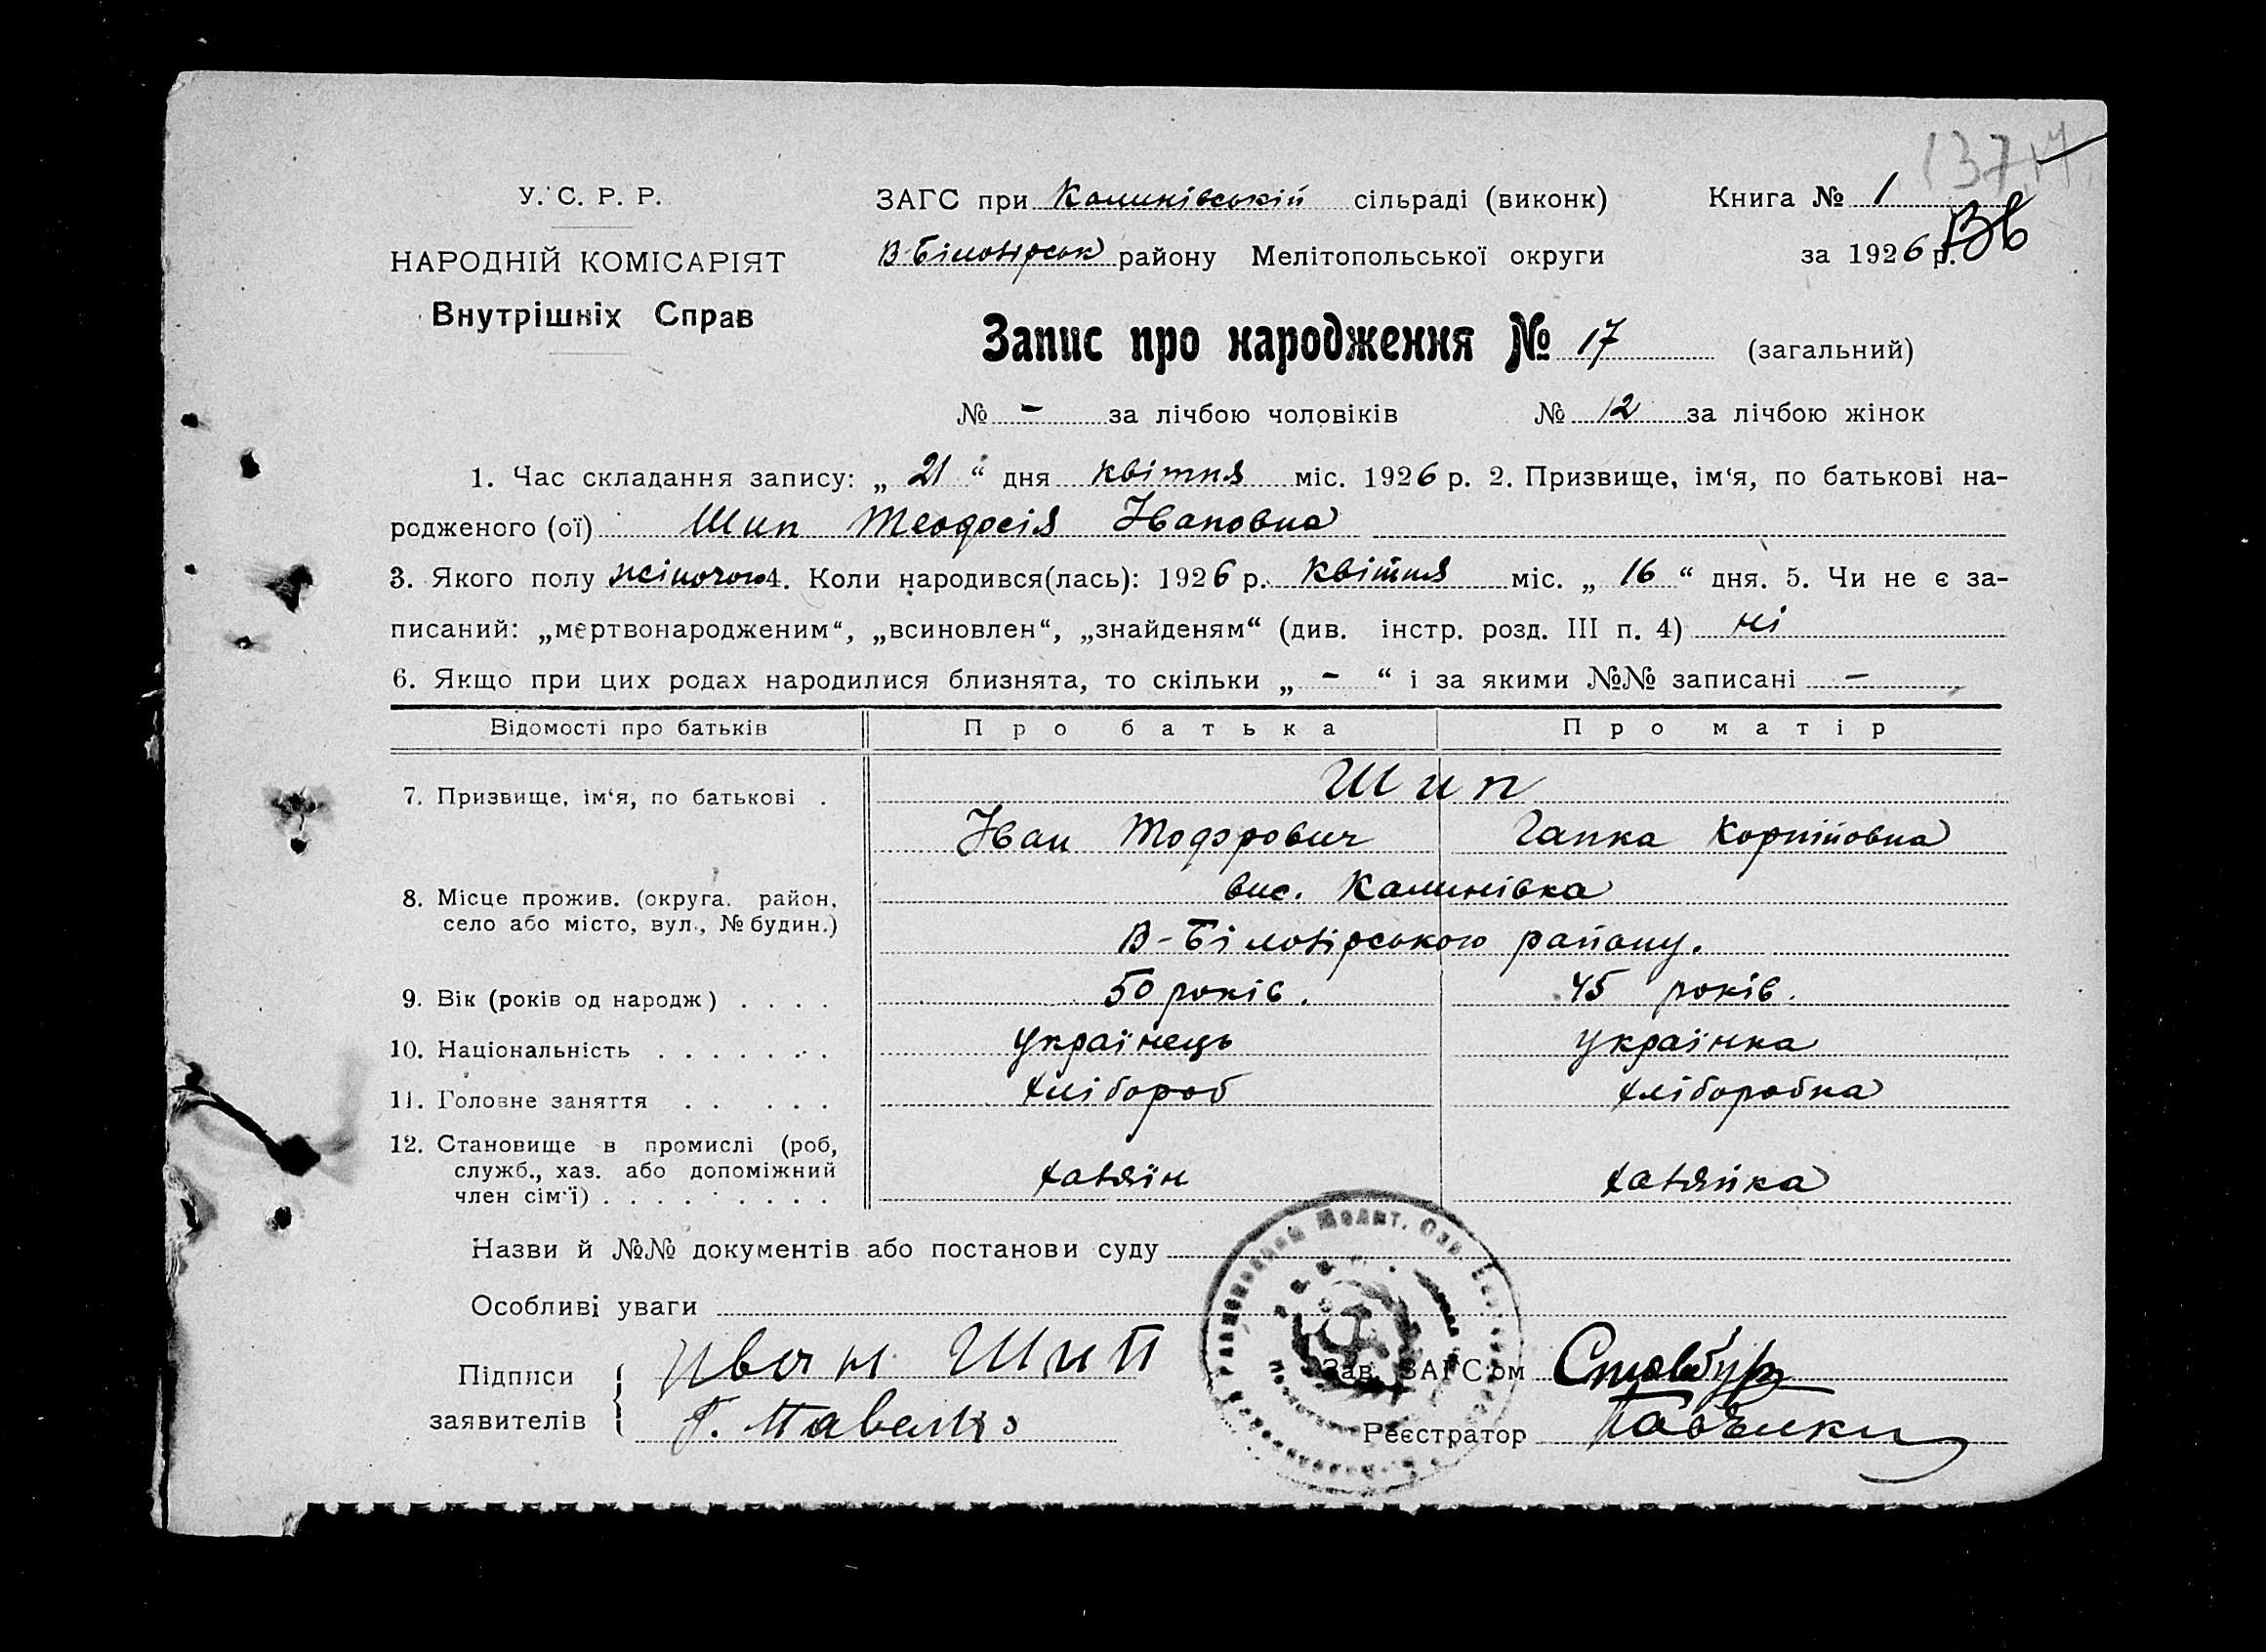 137
У. С. Р. Р.
НАРОДНІЙ КОМІСАРІЯТ
Внутрішніх Справ
ЗАГС при Калинівській сільраді (виконк)
В-Білозірськ району Мелітопольської округи
Книга № 1
за 1926 р.
Запис про народження № 17 (загальний)
№ - за лічбою чоловіків № 12 за лічбою жінок
1. Час складання запису: „ 21 “ дня квітня міс. 1926 р. 2. Призвище, ім‘я, по батькові на-
родженого (ої) Шип Теодосія Івановна
3. Якого полу жіночого 4. Коли народився(лась): 1926 р. квітня міс. „ 16 “ дня. 5. Чи не є за-
писаний: „мертвонародженим“, „всиновлен“, „знайденям“ (див. інстр. розд. III п. 4) ні
6. Якщо при цих родах народилися близнята, то скільки „ - “ і за якими №№ записані -
Відомості про батьків Про батька Про матір
7. Призвище, ім‘я, по батькові . Шип
Іван Тодорович Гапка Корнійовна
8. Місце прожив. (округа. район, село або місто, вул., № будин.)
вис. Калинівка
В-Білозірського району.
9. Вік (років од народж) . . . . 50 років. 45 років.
10. Національність . . . . . . . українець українка
11. Головне заняття . . . . . хлібороб хліборобка
12. Становище в промислі (роб,
служб., хаз. або допоміжний
член сім‘ї) . . . . . . . . . хазяїн хазяйка
Назви й №№ документів або постанови суду
Особливі уваги
Підписи
заявителів
Иван Шип
Г. Павелко
Зав. ЗАГС‘ом Стовбур
Реєстратор